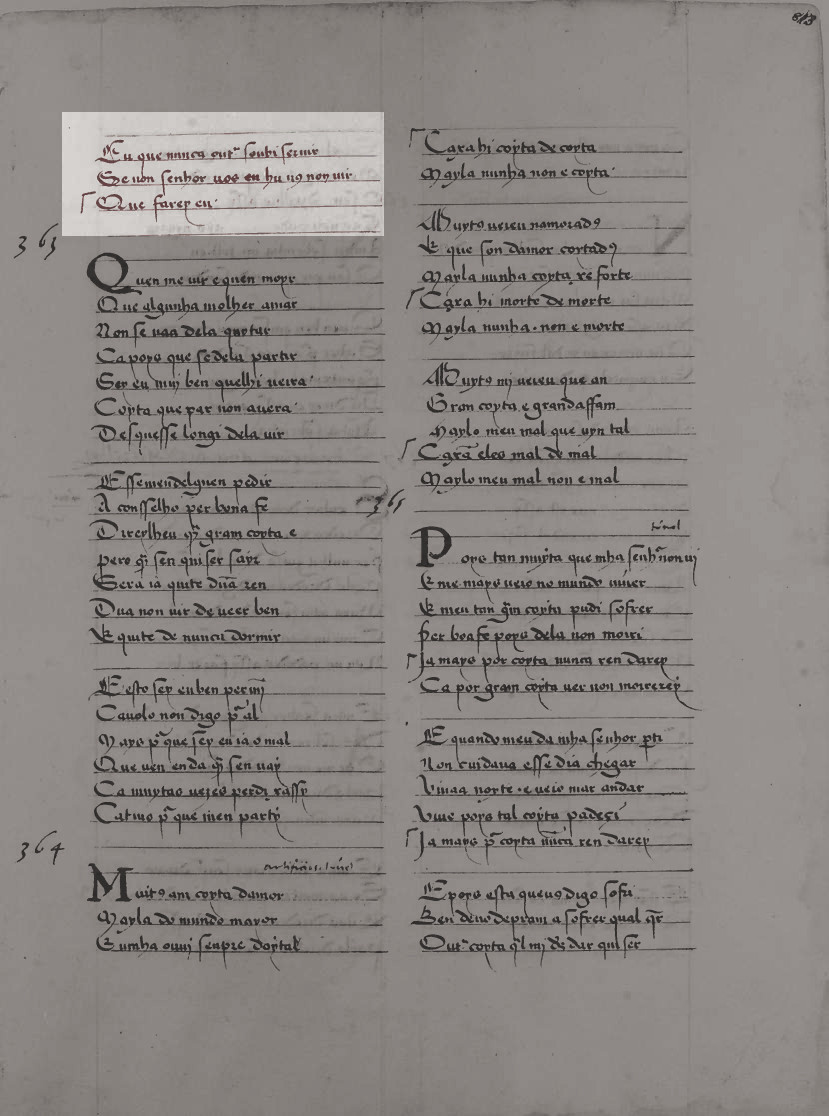 Eu que nunca outr soubi seruir
Se non senhor uos en hu uꝯ non uir
Que farey eu
363
Quen me uir e quen moyr
Que algunha molher amar
Non se uaa dela quytar
Ca poys que se dela partir
Ser eu muj ben quelhi uerra
Coyta que par non auera
Desquesse longi dela uir
Essemendelguen pedir
A consselho per bona fe
Direylheu q̄ gram coyta e
pero q̄ sen qui ser sayr
Sera ia quite dūa ren
Dua non uir de ueer ben
E quite de nunca dormir
E esto sey eu ben per mj̄
Ca uolo non digo p̄ al
Mays p̄ que sey eu ia o mal
Que uen enda q̄ sen uay
Ca muytao uezes perdi rassy
Catiuo p̄ que men party
364
Muitꝯ am coyta damor
Mayla do mundo mayor
Eu mha ouuj senpre doytal
Cara hi coyta de coyta
Mayla minha non e coyta
Muyto ueieu namoradꝯ
E que son damor coytadꝯ
Mayla minha coyta xe forte
Cara hi morte de morte
Mayla minha non e morte
Muyto mj ueieu que an
Gran coyta e grandaffam
Maylo meu mal que uyn tal
Cara eles mal de mal
Maylo meu mal non e mal
365
tornel
Poys tan muyta que mha senhr̄ non uj
E me mays ueio no mundo uiuer
E meu tan gm̄ coyta pudi sofrer
Per boa fe poys dela non moiri
Ja mays por coyta nunca ren darey
Ca por gram coyta uer non moirerey
E quando meu da mha senhor p̄ti
Non cuidaua esse dia chegar
Viuaa norte e ueio mar andar
Viue poys tal coyta padeçi
Ja mays p̄ coyta nūca ren darey
E poys esta queuꝯ digo sofri
Ben deuo depram a sofrer qual qr̄
Outr coyta ql̄ mj ds̄ dar quiser